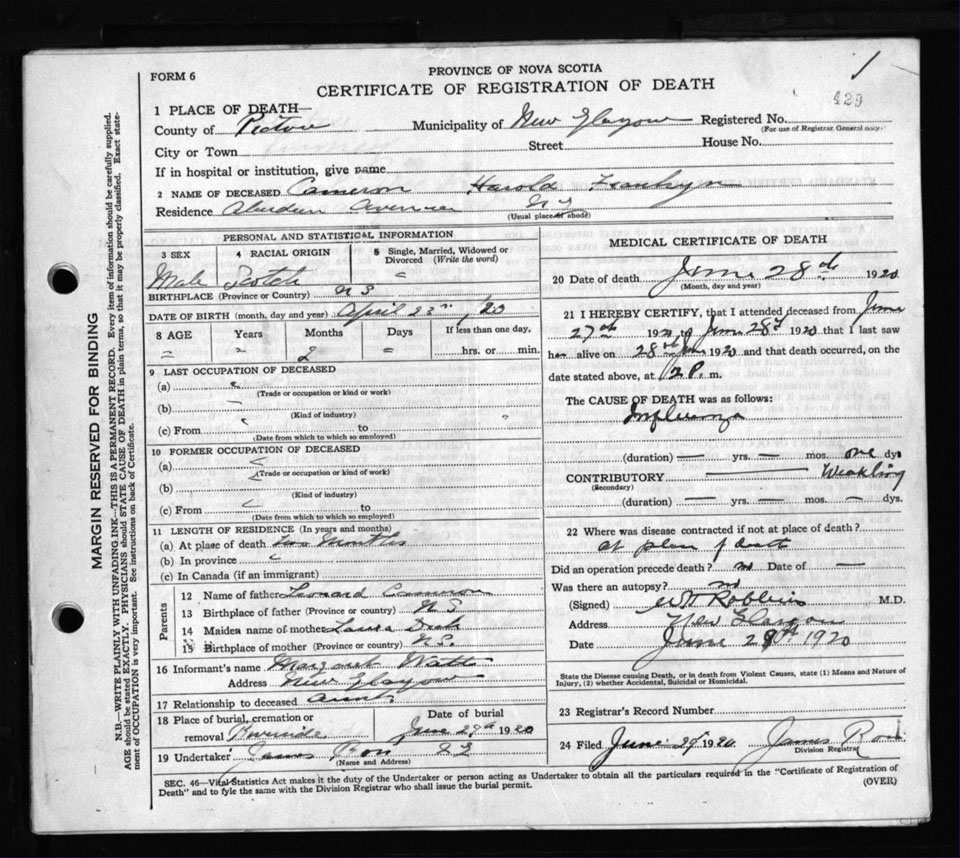 FORM 6
PROVINCE OF NOVA SCOTIA
CERTIFICATE OF REGISTRATION OF DEATH
429
1 PLACE OF DEATH—
County of Pictou Municipality of New Glasgow Registered No.
(For use of Registrar General only)
City or Town Street House No.
If in hospital or institution, give name
2 NAME OF DECEASED Cameron Harold
Residence Aberdeen Avenue
(Usual place of abode)
PERSONAL AND STATISTICAL INFORMATION
3 SEX 4 RACIAL ORIGIN 5 Single, Married, Widowed or Divorced (Write the word)
Male Scotch "
BIRTHPLACE (Province or Country) N S
DATE OF BIRTH (month, day and year) April 23rd /20
8 AGE Years Months Days If less than one day,
" " 2 " hrs. or min.
9 LAST OCCUPATION OF DECEASED
(a)
(Trade or occupation or kind of work)
(b)
(Kind of industry)
(c) From to
(Date from which to which so employed)
10 FORMER OCCUPATION OF DECEASED
(a)
(Trade or occupation or kind of work)
(b)
(Kind of industry)
(c) From to
(Date from which to which so employed)
11 LENGTH OF RESIDENCE (In years and months)
(a) At place of death Two Months
(b) In province
(c) In Canada (if an immigrant)
Parents
12 Name of father Leonard Cameron
13 Birthplace of father (Province or country) N.S.
14 Maiden name of mother Laura
15 Birthplace of mother (Province or country) N.S.
16 Informant's name Margaret Watts
Address New Glasgow
17 Relationship to deceased aunt
18 Place of burial, cremation or removal Riverside Date of burial June 29th 1920
19 Undertaker James
(Name and Address)
MEDICAL CERTIFICATE OF DEATH
20 Date of death June 28th 1920
(Month, day and year)
21 I HEREBY CERTIFY, that I attended deceased from June
27th 1920 to June 28th 1920 that I last saw
him alive on 28th June 1920 and that death occurred, on the
date stated above, at 12 P. m.
The CAUSE OF DEATH was as follows:
Influenza
(duration) — yrs. — mos. one dys
CONTRIBUTORY Weakling
(Secondary)
(duration) — yrs. — mos. — dys.
22 Where was disease contracted if not at place of death?
at place of death
Did an operation precede death? no Date of —
Was there an autopsy? no
(Signed) Robbins M.D.
Address New Glasgow
Date June 29th 1920
State the Disease causing Death, or in death from Violent Causes, state (1) Means and Nature of
Injury, (2) whether Accidental, Suicidal or Homicidal.
23 Registrar's Record Number
24 Filed June 29 1920 James
Division Registrar
SEC. 46—Vital Statistics Act makes it the duty of the Undertaker or person acting as Undertaker to obtain all the particulars required in the "Certificate of Registration of
Death" and to fyle the same with the Division Registrar who shall issue the burial permit.
(OVER)
MARGIN RESERVED FOR BINDING
N.B.—WRITE PLAINLY WITH UNFADING INK—THIS IS A PERMANENT RECORD. Every item of information should be carefully supplied.
AGE should be stated EXACTLY. PHYSICIANS should STATE CAUSE OF DEATH in plain terms, so that it may be properly classified. Exact state-
ment of OCCUPATION is very important. See instructions on back of Certificate.